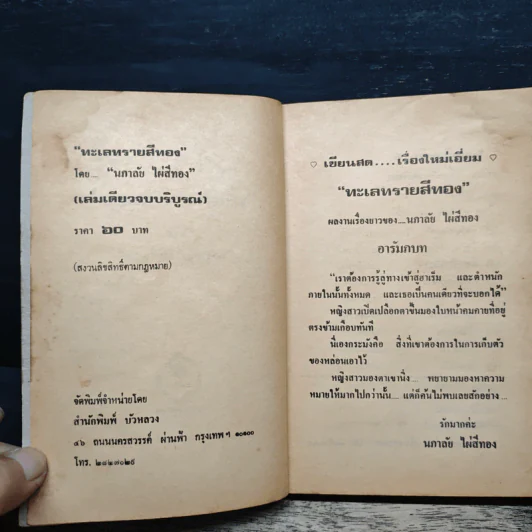 “ทะเลทรายสีทอง”
โดย... “นภาลัย ไผ่สีทอง”
(เล่มเดียวจบบริบูรณ์)
ราคา ๖๐ บาท
(สงวนลิขสิทธิ์ตามกฎหมาย)
จัดพิมพ์จำหน่ายโดย
สำนักพิมพ์ บัวหลวง
๔๖ ถนนนครสวรรค์ ผ่านฟ้า กรุงเทพฯ ๑๐๑๐๐
โทร. ๒๘๒๗๐๒๕
♡ เขียนสด....เรื่องใหม่เอี่ยม ♡
“ทะเลทรายสีทอง”
ผลงานเรื่องยาวของ...นภาลัย ไผ่สีทอง
อารัมภบท
“เราต้องการรู้ลู่ทางเข้าสู่ฮาเร็ม และตำหนัก
ภายในนั้นทั้งหมด และเธอเป็นคนเดียวที่จะบอกได้”
หญิงสาวเบิดเปลือกตาขึ้นมองใบหน้าคมคายที่อยู่
ตรงข้ามเกือบทันที
นี่เองกระมังคือ สิ่งที่เขาต้องการในการเก็บตัว
ของหล่อนเอาไว้
หญิงสาวมองตาเขานิ่ง... พยายามมองหาความ
หมายให้มากไปกว่านั้น... แต่ก็ค้นไม่พบเลยสักอย่าง...
รักมากค่ะ
นภาลัย ไผ่สีทอง